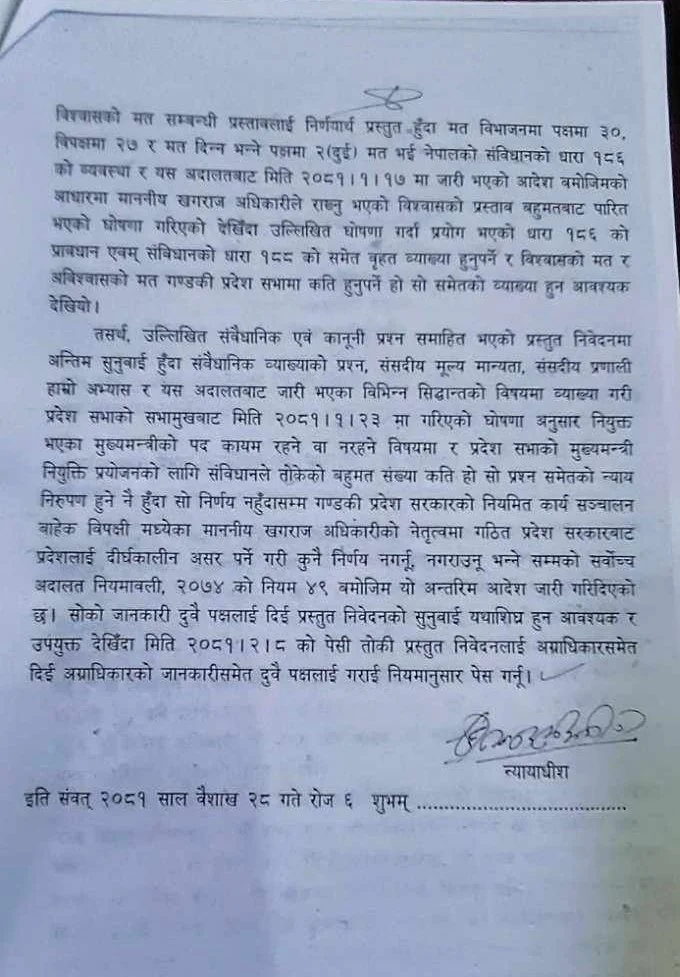 विश्वासको मत सम्बन्धी प्रस्तावलाई निर्णयार्थ प्रस्तुत हुँदा मत विभाजनमा पक्षमा ३०,
विपक्षमा २७ र मत दिन्न भन्ने पक्षमा २(दुई) मत भई नेपालको संविधानको धारा १८६
को व्यवस्था र यस अदालतबाट मिति २०८१।१।१७ मा जारी भएको आदेश बमोजिमको
आधारमा माननीय खगराज अधिकारीले राख्नु भएको विश्वासको प्रस्ताव बहुमतबाट पारित
भएको घोषणा गरिएको देखिँदा उल्लिखित घोषणा गर्दा प्रयोग भएको धारा १८६ को
प्रावधान एवम् संविधानको धारा १८८ को समेत वृहत व्याख्या हुनुपर्ने र विश्वासको मत र
अविश्वासको मत गण्डकी प्रदेश सभामा कति हुनुपर्ने हो सो समेतको व्याख्या हुन आवश्यक
देखियो।
तसर्थ, उल्लिखित संवैधानिक एवं कानूनी प्रश्न समाहित भएको प्रस्तुत निवेदनमा
अन्तिम सुनुवाई हुँदा संवैधानिक व्याख्याको प्रश्न, संसदीय मूल्य मान्यता, संसदीय प्रणाली
हाम्रो अभ्यास र यस अदालतबाट जारी भएका विभिन्न सिद्धान्तको विषयमा व्याख्या गरी
प्रदेश सभाको सभामुखबाट मिति २०८१।१।२३ मा गरिएको घोषणा अनुसार नियुक्त
भएका मुख्यमन्त्रीको पद कायम रहने वा नरहने विषयमा र प्रदेश सभाको मुख्यमन्त्री
नियुक्ति प्रयोजनको लागि संविधानले तोकेको बहुमत संख्या कति हो सो प्रश्न समेतको न्याय
निरुपण हुने नै हुँदा सो निर्णय नहुँदासम्म गण्डकी प्रदेश सरकारको नियमित कार्य सञ्चालन
बाहेक विपक्षी मध्येका माननीय खगराज अधिकारीको नेतृत्वमा गठित प्रदेश सरकारबाट
प्रदेशलाई दीर्घकालीन असर पर्ने गरी कुनै निर्णय नगर्नू, नगराउनू भन्ने सम्मको सर्वोच्च
अदालत नियमावली, २०७४ को नियम ४९ बमोजिम यो अन्तरिम आदेश जारी गरिदिएको
छ। सोको जानकारी दुवै पक्षलाई दिई प्रस्तुत निवेदनको सुनुवाई यथाशिघ्र हुन आवश्यक र
उपयुक्त देखिँदा मिति २०८१।२।८ को पेसी तोकी प्रस्तुत निवेदनलाई अग्राधिकारसमेत
दिई अग्राधिकारको जानकारीसमेत दुवै पक्षलाई गराई नियमानुसार पेस गर्नू।
न्यायाधीश
इति संवत् २०८१ साल वैशाख २८ गते रोज ६ शुभम् ......................................